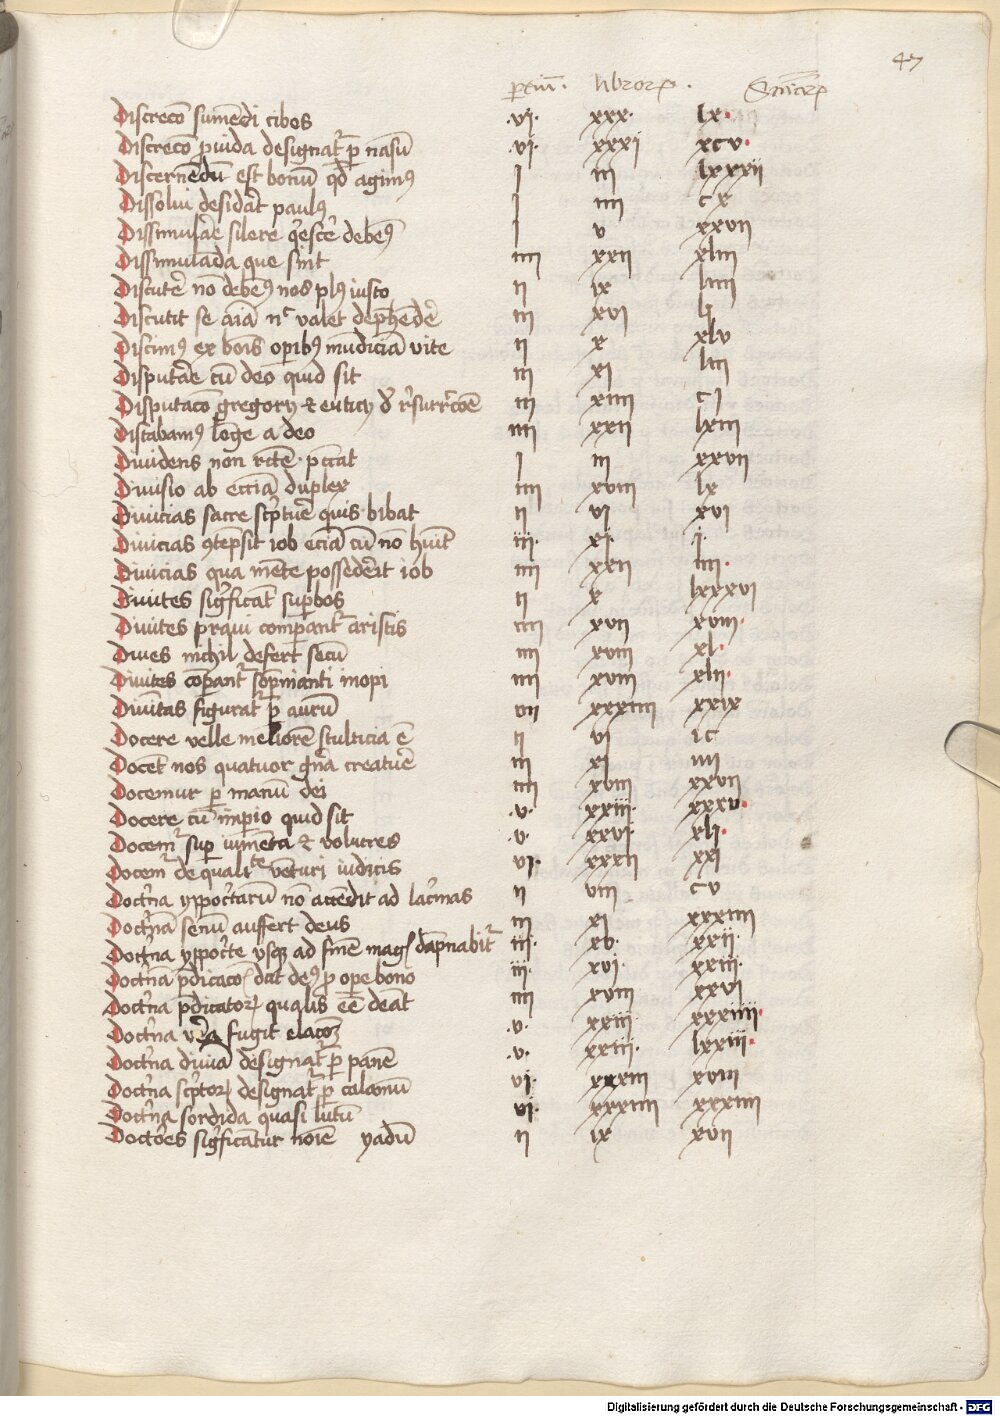 47
ꝑciū. libroꝝ. Sn̄iaꝝ
Discrecō sumēdi cibos .vj. xxx. lx.
Discrecō ꝓuida designat᷑ ꝑ nasū .vj. xxxj xcv.
Discernēdū est bonū qd̄ agimꝰ j iij lxxxij
Dissolui desiderat paulꝰ j iiij cx
Dissimulare silere q̇escere debemꝰ j v xxvij
Dissimulāda que sint iiij xxij xliij
Discutere nō debemꝰ nos plꝰ iusto ij ix liiij
Discutit se aīa nᶜ valet dephēdere iij xvj lj
Discimꝰ ex bonis oꝑibꝰ mūdiciā vite ij x xlv
Disputare cū deo quid sit iij xj liij
Disputacō gregorij et euticij de resurreccōe iij xiiij cj
Distabamꝰ lōge a deo iiij xxij lxiij
Diuidens non recte peccat j iij xxvij
Diuisio ab eccīa duplex iiij xviij lx
Diuicias sacre scpture quis bibat ij vj xvj
Diuicias ꝯtēpsit iob eciā cū nō hūit iij. xj. j.
Diuicias qua mēte possederit iob iiij xxij iiij.
Diuites sigficant suꝑbos ij x lxxxvj
Diuites praui comꝑant᷑ aristis iiij xvij xviij.
Diues nichil defert secū iiij xviij xl.
Diuites cōꝑant᷑ sōpnianti inopi iiij xviij xlij.
Diuinitas figurat᷑ ꝑ aurū vij xxxiiij xxix
Docere velle meliorē stulticia ē ij vj ic
Docēt nos quatuor gn̄a creature iij xj iiij
Docemur ꝑ manū dei iiij xviij xxvij
Docere cū imperio quid sit .v. xxiij. xxxv.
Docem᷑ suꝑ iumēta et volucres .v. xxvj. xlj.
Docem᷑ de qualitᵗᵉ vēturi iudicis vj. xxxij xxj
Doctrina ypocritarū nō accēdit ad lacrimas ij viij cv
Doctrinā senū auffert deus iij xj xxxiiij
Doctrina ypocrite vsqꝫ ad finē magis dāpnabit᷑ iij. xv. xxij.
Doctrinā ꝑdicacōis dat deꝰ ꝓ oꝑe bono iij. xvj. xxiij.
Doctrina ꝑdicatorꝝ qualis eē debeat iiij xviij xxvj
Doctrina vera fugit elacōeꝫ .v. xxiij xxxiiij.
Doctrina diuina designat᷑ ꝑ panē .v. xxiij. lxxiij.
Doctrina scptorꝝ designat᷑ ꝑ calamū vj. xxxiij xviij
Doctrina sordida quasi lutū vj. xxxiiij xxxiiij
Doctores sigficantur noīe yadū ij ix xvij
Digitalisierung gefördert durch die Deutsche Forschungsgemeinschaft - DFG